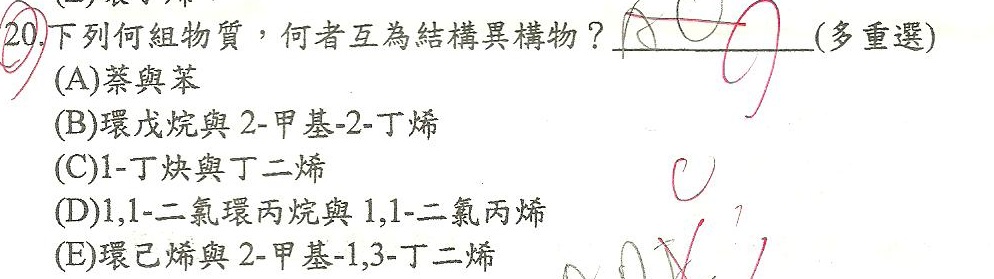 20.下列何組物質，何者互為結構異構物？________(多重選)
(A)萘與苯
(B)環戊烷與 2-甲基-2-丁烯
(C)1-丁炔與丁二烯
(D)1,1-二氯環丙烷與 1,1-二氯丙烯
(E)環己烯與 2-甲基-1,3-丁二烯